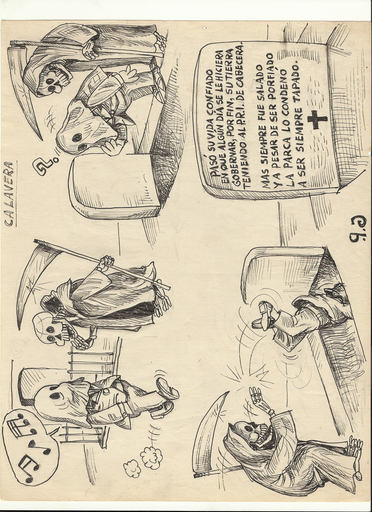 CALAVERA
?
PASO SU VIDA CONFIADO
EN QUE ALGUN DIA SE LE HICIERA
GOBERNAR, POR FIN, SU TIERRA
TENIENDO AL P.R.I. DE CABECERA.
MAS SIEMPRE FUE SALADO
Y A PESAR DE SER PORFIADO
LA PARCA LO CONDENO
A SER SIEMPRE TAPADO.